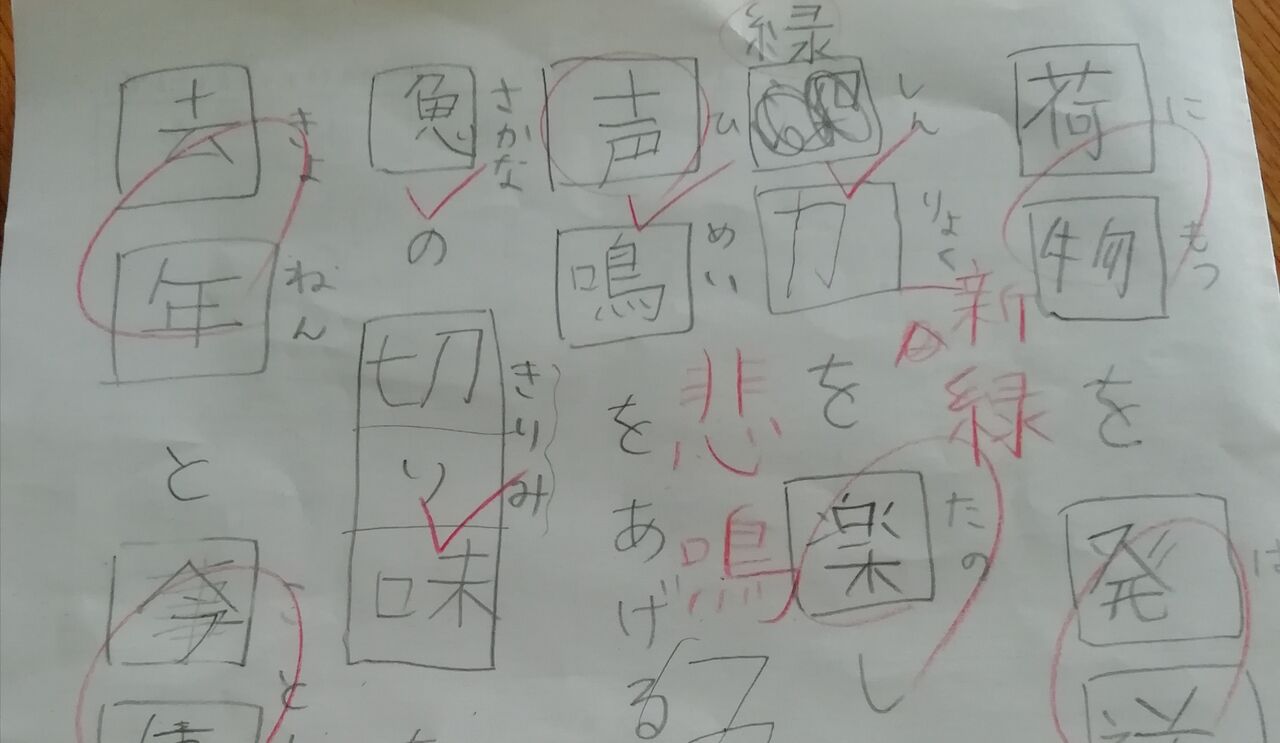 にもつ
荷物を発
新緑
しんりょく たの
緑
力を楽し
悲鳴
ひめい
声鳴をあげる
さかな きりみ
魚の切り味
きょねん こと
去年と今